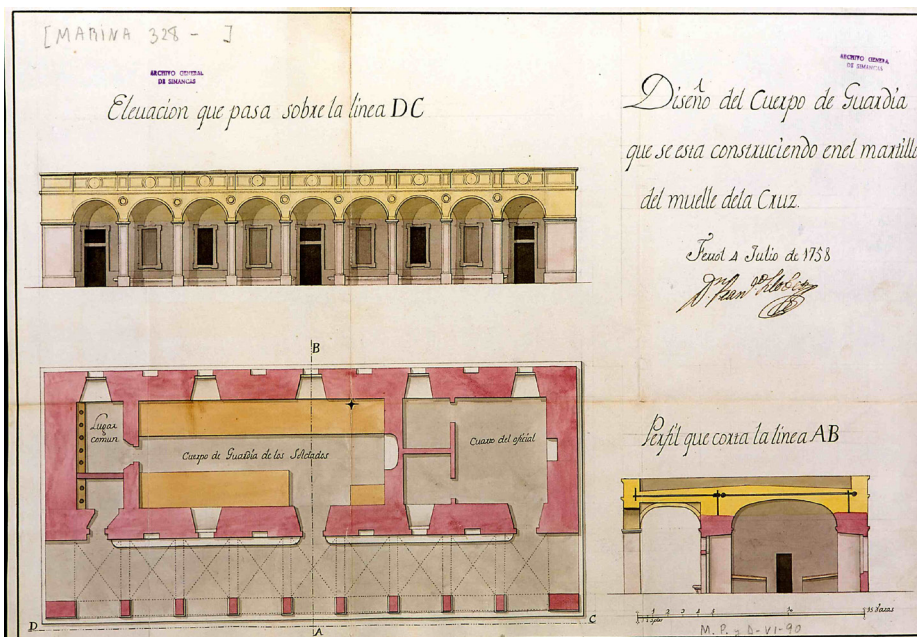 [MARINA 328 - ]
ARCHIVO GENERAL
DE SIMANCAS
ARCHIVO GENERA
DE SIMANCAS
Elevacion que pasa sobre la linea DC
Diseño del Cuerpo de Guardia
que se esta construciendo en el martillo
del muelle dela Cruz.
Ferrol 4 Julio de 1758
B
Lugar
comun
Cuerpo de Guardia de los Soldados
Cuarto del oficial
D
A
C
Perfil que corta la linea AB
1 2 3 4
M. P. y D-VI-90